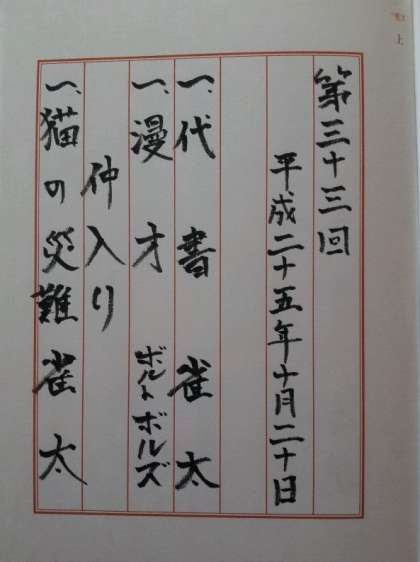 上
第三十三回
平成二十五年十月二十日
一、代書 雀太
一、漫才 ボルトボルズ
仲入り
一、猫の災難 雀太